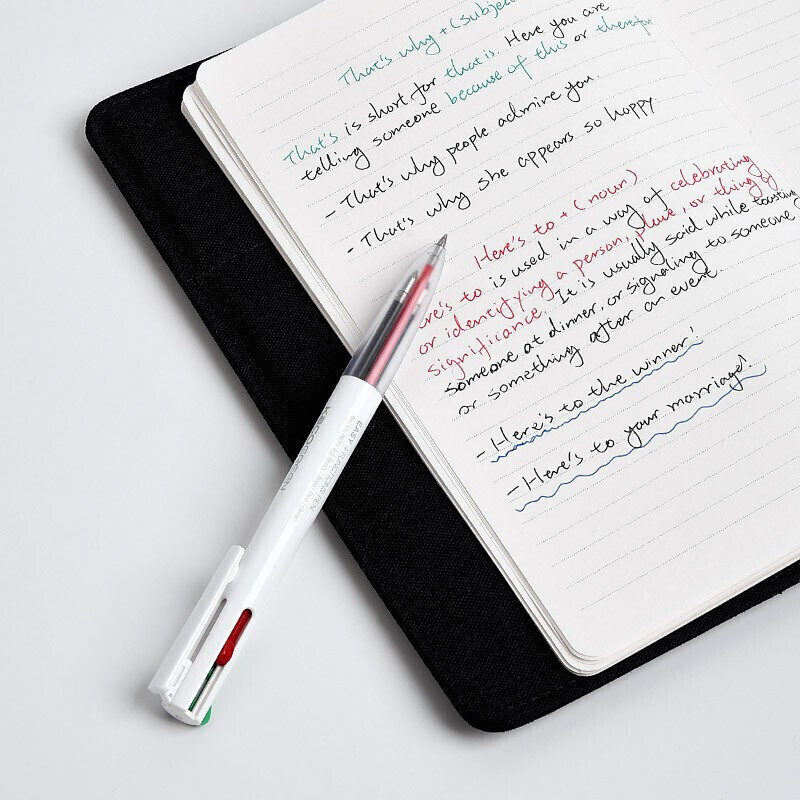 That's why + (subject
That's is short for that is. Here you are
telling someone because of this or therefore
- That's why people admire you.
- That's why she appears so happy
Here's to + (noun)
ere's to is used in a way of celebrating
or identifying a person, place, or thing of
significance. It is usually said while toasting
someone at dinner, or signaling to someone
or something after an event.
- Here's to the winner!
- Here's to your marriage!
KACOGREEN
EASY 4 FUNCTIONS PEN